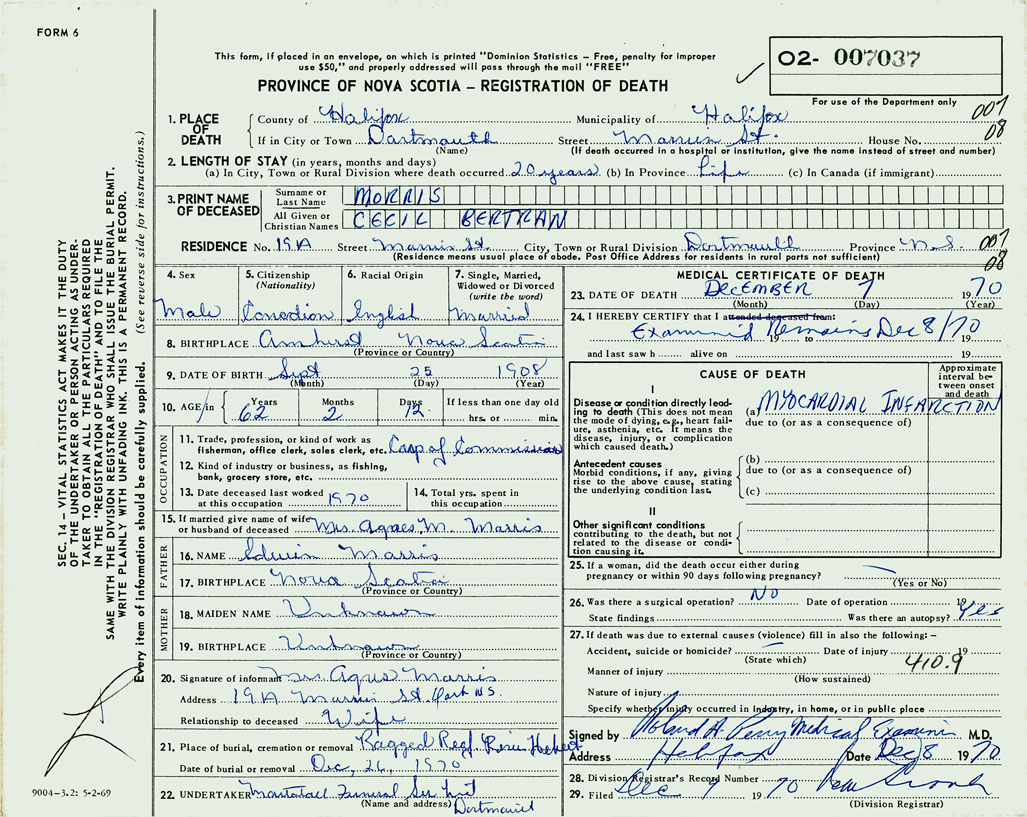 FORM 6
This form, if placed in an envelope, on which is printed "Dominion Statistics - Free, penalty for improper
use $50," and properly addressed will pass through the mail "FREE"
02- 007037
PROVINCE OF NOVA SCOTIA - REGISTRATION OF DEATH
For use of the Department only
007
08
1. PLACE OF DEATH
County of Halifax Municipality of Halifax
If in City or Town Dartmouth Street Morris St. House No.
(Name) (If death occurred in a hospital or institution, give the name instead of street and number)
2. LENGTH OF STAY (in years, months and days)
(a) In City, Town or Rural Division where death occurred 20 years (b) In Province Life (c) In Canada (if immigrant)
3. PRINT NAME OF DECEASED
Surname or Last Name MORRIS
All Given or Christian Names CECIL BERTRAN
RESIDENCE No. 19A Street Morris St. City, Town or Rural Division Dartmouth Province N.S. 007
08
(Residence means usual place of abode. Post Office Address for residents in rural parts not sufficient)
4. Sex
Male
5. Citizenship
(Nationality)
Canadian
6. Racial Origin
English
7. Single, Married,
Widowed or Divorced
(write the word)
Married
8. BIRTHPLACE Amherst Nova Scotia
(Province or Country)
9. DATE OF BIRTH Sept 25 1908
(Month) (Day) (Year)
10. AGE in Years 62 Months 2 Days 12 If less than one day old
hrs. or min.
OCCUPATION
11. Trade, profession, or kind of work as
fisherman, office clerk, sales clerk, etc. Corp of Commission
12. Kind of industry or business, as fishing,
bank, grocery store, etc.
13. Date deceased last worked
at this occupation 1970
14. Total yrs. spent in
this occupation
15. If married give name of wife
or husband of deceased Mrs. Agnes M. Morris
FATHER
16. NAME Edwin Morris
17. BIRTHPLACE Nova Scotia
(Province or Country)
MOTHER
18. MAIDEN NAME Unknown
19. BIRTHPLACE Unknown
(Province or Country)
20. Signature of informant Mrs. Agnes Morris
Address 19A Morris St. Dart N.S.
Relationship to deceased Wife
21. Place of burial, cremation or removal Ragged
Date of burial or removal Dec, 26, 1970
22. UNDERTAKER Funeral
(Name and address) Dartmouth
MEDICAL CERTIFICATE OF DEATH
23. DATE OF DEATH DECEMBER 7 1970
(Month) (Day) (Year)
24. I HEREBY CERTIFY that I attended deceased from:
Examined Remains Dec 8/70
19 to 19
and last saw h alive on 19
CAUSE OF DEATH
Approximate interval between onset and death
I
Disease or condition directly leading to death (This does not
mean the mode of dying, e.g., heart failure,
asthenia, etc. It means the
disease, injury, or complication
which caused death.)
(a) MYOCARDIAL INFARCTION
due to (or as a consequence of)
Antecedent causes
Morbid conditions, if any, giving
rise to the above cause, stating
the underlying condition last.
(b)
due to (or as a consequence of)
(c)
II
Other significant conditions
contributing to the death, but not
related to the disease or condition
causing it.
25. If a woman, did the death occur either during
pregnancy or within 90 days following pregnancy?
(Yes or No)
26. Was there a surgical operation? No Date of operation 19
State findings Was there an autopsy? Yes
27. If death was due to external causes (violence) fill in also the following: -
Accident, suicide or homicide? Date of injury 19
(State which)
410.9
Manner of injury
(How sustained)
Nature of injury
Specify whether injury occurred in industry, in home, or in public place
Signed by Roland A. Perry Medical Examiner M.D.
Address Halifax Date Dec 8 1970
28. Division Registrar's Record Number
29. Filed Dec 9 1970
(Division Registrar)
SEC. 14 - VITAL STATISTICS ACT MAKES IT THE DUTY
OF THE UNDERTAKER OR PERSON ACTING AS UNDERTAKER
TO OBTAIN ALL THE PARTICULARS REQUIRED
IN THE "REGISTRATION OF DEATH" AND TO FILE THE
SAME WITH THE DIVISION REGISTRAR WHO SHALL ISSUE THE BURIAL PERMIT.
WRITE PLAINLY WITH UNFADING INK. THIS IS A PERMANENT RECORD.
Every item of information should be carefully supplied. (See reverse side for instructions.)
9004-3.2: 5-2-69